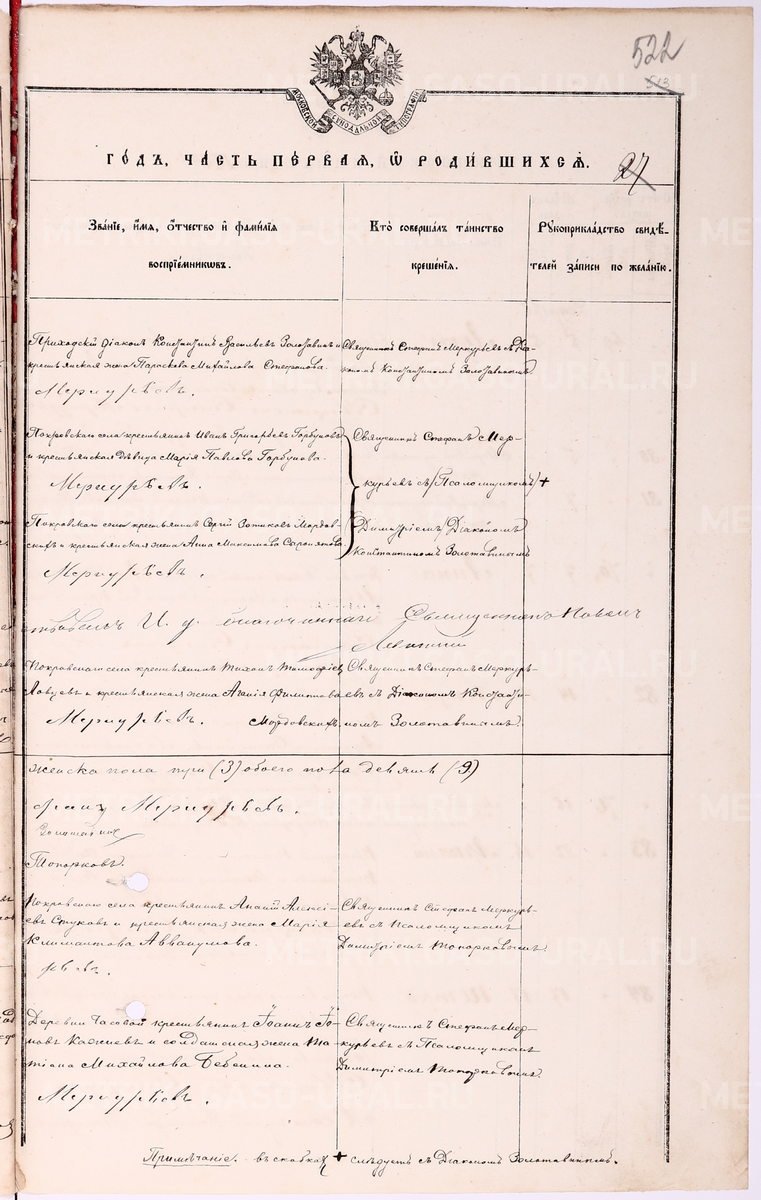 522
513
МОСКОВСКОЙ СѴНОДАЛЬНОЙ ТИПОГРАФІИ
ГОДЪ, ЧАСТЬ ПЕРВАЯ, Ѿ РОДИВШИХСЯ.
27
Званіе, имя, отчество и фамилія воспріемниковъ.
Кто совершалъ таинство крещенія.
Рукоприкладство свидѣтелей записи по желанію.
Приходскій діаконъ Константинъ Васильевъ Золотавинъ и
крестьянская жена Параскева Михайлова Стефанова.
Меркурьевъ.
Священникъ Стефанъ Меркурьевъ съ Діа-
кономъ Константиномъ Золотавинымъ
Покровскаго села крестьянинъ Иванъ Григорьевъ Горбуновъ
и крестьянская дѣвица Марія Павлова Горбунова.
Меркурьевъ.
Покровскаго села крестьянинъ Сергій Зотиковъ Мордов-
скихъ и крестьянская жена Анна Максимова
Меркурьевъ.
Священникъ Стефанъ Мер-
курьевъ съ (Псаломщикомъ) +
(Димитріемъ) Діакономъ
Константиномъ Золотавинымъ
И. д. благочиннаго Священникъ Павелъ
Покровскаго села крестьянинъ Тихонъ Тимофѣевъ
и крестьянская жена Агапія Филиппова
Меркурьевъ. Мордовскихъ.
Священникъ Стефанъ Меркурь-
евъ съ Діакономъ Константи-
номъ Золотавинымъ.
женска пола три (3) обоего пола девять (9)
Меркурьевъ.
Топорковъ.
Покровскаго села крестьянинъ Алексі-
евъ Стуковъ и крестьянская жена Марія
Климантова Аввакумова.
рьевъ.
Священникъ Стефанъ Меркурь-
евъ съ Псаломщикомъ
Димитріемъ Топорковымъ.
Деревни Часовой крестьянинъ Іоаннъ Іо-
новъ и солдатская жена Та-
тіана Михайлова Бебенина.
Меркурьевъ.
Священникъ Стефанъ Мер-
курьевъ съ Псаломщикомъ
Димитріемъ Топорковымъ.
Примѣчаніе. въ скобках + слѣдуетъ съ Діакономъ Золотавинымъ.